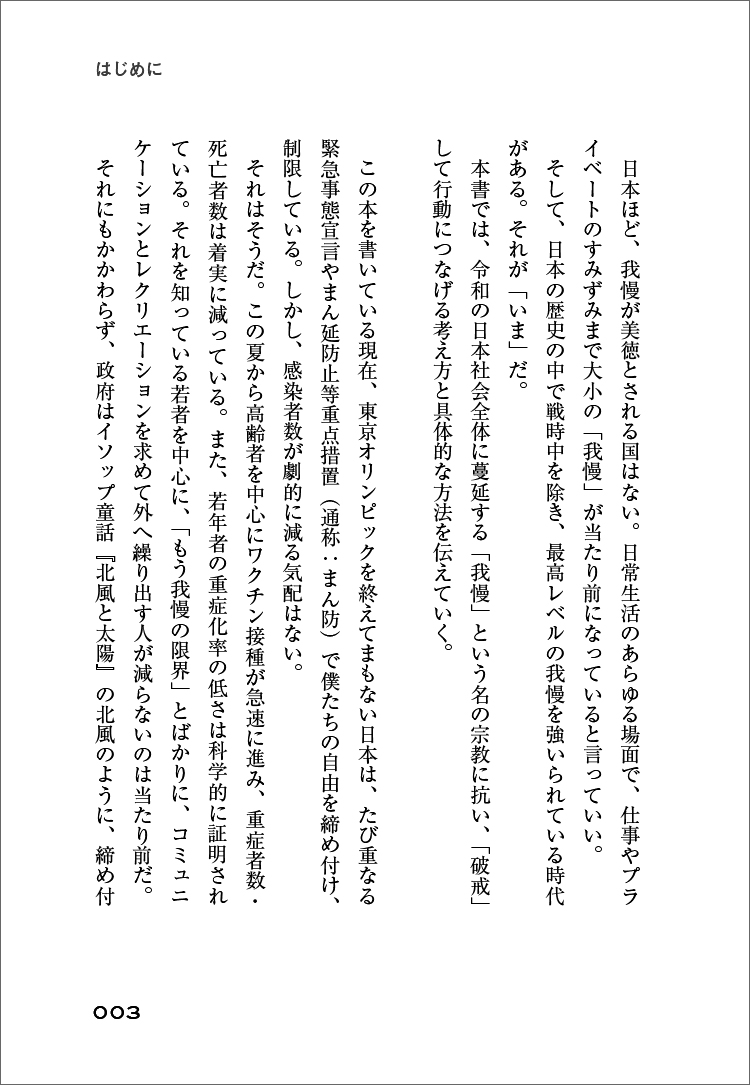 はじめに
日本ほど、我慢が美徳とされる国はない。日常生活のあらゆる場面で、仕事やプラ
イベートのすみずみまで大小の「我慢」が当たり前になっていると言っていい。
そして、日本の歴史の中で戦時中を除き、最高レベルの我慢を強いられている時代
がある。それが「いま」だ。
本書では、令和の日本社会全体に蔓延する「我慢」という名の宗教に抗い、「破戒」
して行動につなげる考え方と具体的な方法を伝えていく。
この本を書いている現在、東京オリンピックを終えてまもない日本は、たび重なる
緊急事態宣言やまん延防止等重点措置（通称：まん防）で僕たちの自由を締め付け、
制限している。しかし、感染者数が劇的に減る気配はない。
それはそうだ。この夏から高齢者を中心にワクチン接種が急速に進み、重症者数・
死亡者数は着実に減っている。また、若年者の重症化率の低さは科学的に証明され
ている。それを知っている若者を中心に、「もう我慢の限界」とばかりに、コミュニ
ケーションとレクリエーションを求めて外へ繰り出す人が減らないのは当たり前だ。
それにもかかわらず、政府はイソップ童話『北風と太陽』の北風のように、締め付
003